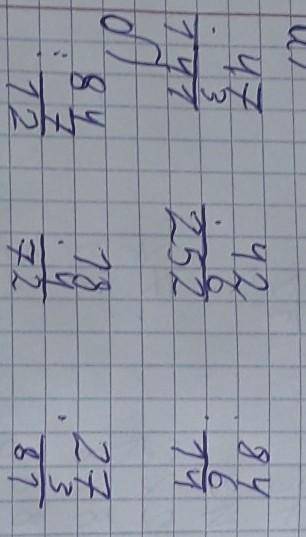 a)
47 42 84
· 3 · 6 · 6
141 252 14
б)
84 18 27
: 7 · 4 · 3
12 72 81